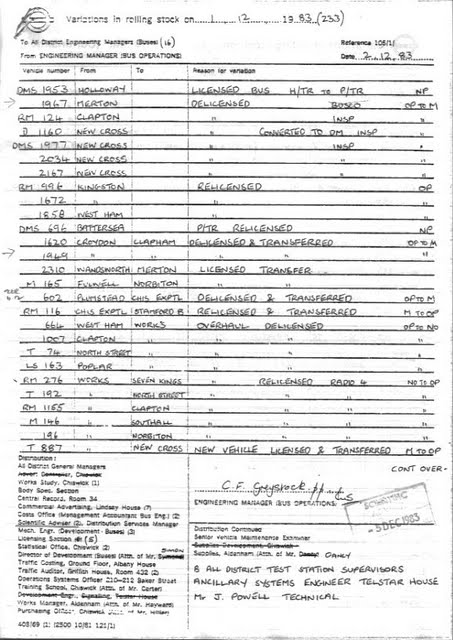 Variations in rolling stock on 1 12 1983 (233)
To All District Engineering Managers (Buses) (16) Reference 106/1
From ENGINEERING MANAGER (BUS OPERATIONS) Date 2.12.83
Vehicle number From To Reason for variation
DMS 1953 HOLLOWAY LICENSED BUS H/TR to P/TR NP
1967 MERTON DELICENSED BUSCO OP TO M
RM 124 CLAPTON " INSP "
D 1160 NEW CROSS " CONVERTED TO DM INSP "
DMS 1977 NEW CROSS " INSP "
2034 NEW CROSS " "
2167 NEW CROSS " "
RM 996 KINGSTON RELICENSED OP
1672 " " "
1858 WEST HAM " "
DMS 696 BATTERSEA P/TR RELICENSED NP
1620 CROYDON CLAPHAM DELICENSED & TRANSFERRED OP TO M
1949 " " " "
2310 WANDSWORTH MERTON LICENSED TRANSFER
M 165 FULWELL NORBITON "
602 PLUMSTEAD CHIS EXPTL DELICENSED & TRANSFERRED OP TO M
RM 116 CHIS EXPTL STAMFORD B RELICENSED & TRANSFERRED M TO OP
664 WEST HAM WORKS OVERHAUL DELICENSED OP TO NO
1007 CLAPTON " " " "
T 74 NORTH STREET " " " "
LS 163 POPLAR " " " "
RM 276 WORKS SEVEN KINGS " RELICENSED RADIO 4 NO TO OP
T 192 " NORTH STREET " " "
RM 1155 " CLAPTON " " "
M 146 " SOUTHALL " " "
196 " NORBITON " " "
T 887 " NEW CROSS NEW VEHICLE LICENSED & TRANSFERRED M TO OP
CONT OVER-
Distribution:
All District General Managers
Works Study, Chiswick (1)
Body Spec. Section
Central Record, Room 34
Commercial Advertising, Lindsay House (7)
Costs Office (Management Accountant Bus Eng.) (2)
Scientific Adviser (2), Distribution Services Manager
Mech. Engr. (Development - Buses) (3)
Licensing Section (5)
Statistical Office, Chiswick (2)
Director of Development (Buses) (Attn. of Mr.
Traffic Costing, Ground Floor, Albany House
Traffic Auditor, Griffith House, Room 432 (2)
Operations Systems Officer 210-212 Baker Street
Training School, Chiswick (Attn. of Mr. Carter)
Works Manager, Aldenham (Attn. of Mr. Hayward)
Purchasing Officer, Chiswick
408/69 (1) (2500 10/81 121/1)
C.F. Greystock
ENGINEERING MANAGER (BUS OPERATIONS)
-5 DEC 1983
Distribution Continued
Senior Vehicle Maintenance Examiner
Supplies Development Chiswick
Supplies, Aldenham (Attn. of Mr. Dancy) DANCY
8 ALL DISTRICT TEST STATION SUPERVISORS
ANCILLARY SYSTEMS ENGINEER TELSTAR HOUSE
Mr J. POWELL TECHNICAL